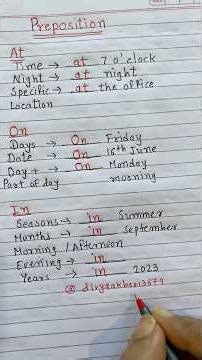 Preposition
At
Time → at 7 o'clock
Night → at night
Specific → at the office
Location
On
Days → On Friday
Date → On 16th June
Day + → On Monday
Part of day morning
In
Seasons → in Summer
Months → in September
Morning / Afternoon
Evening → in
Years → in 2023